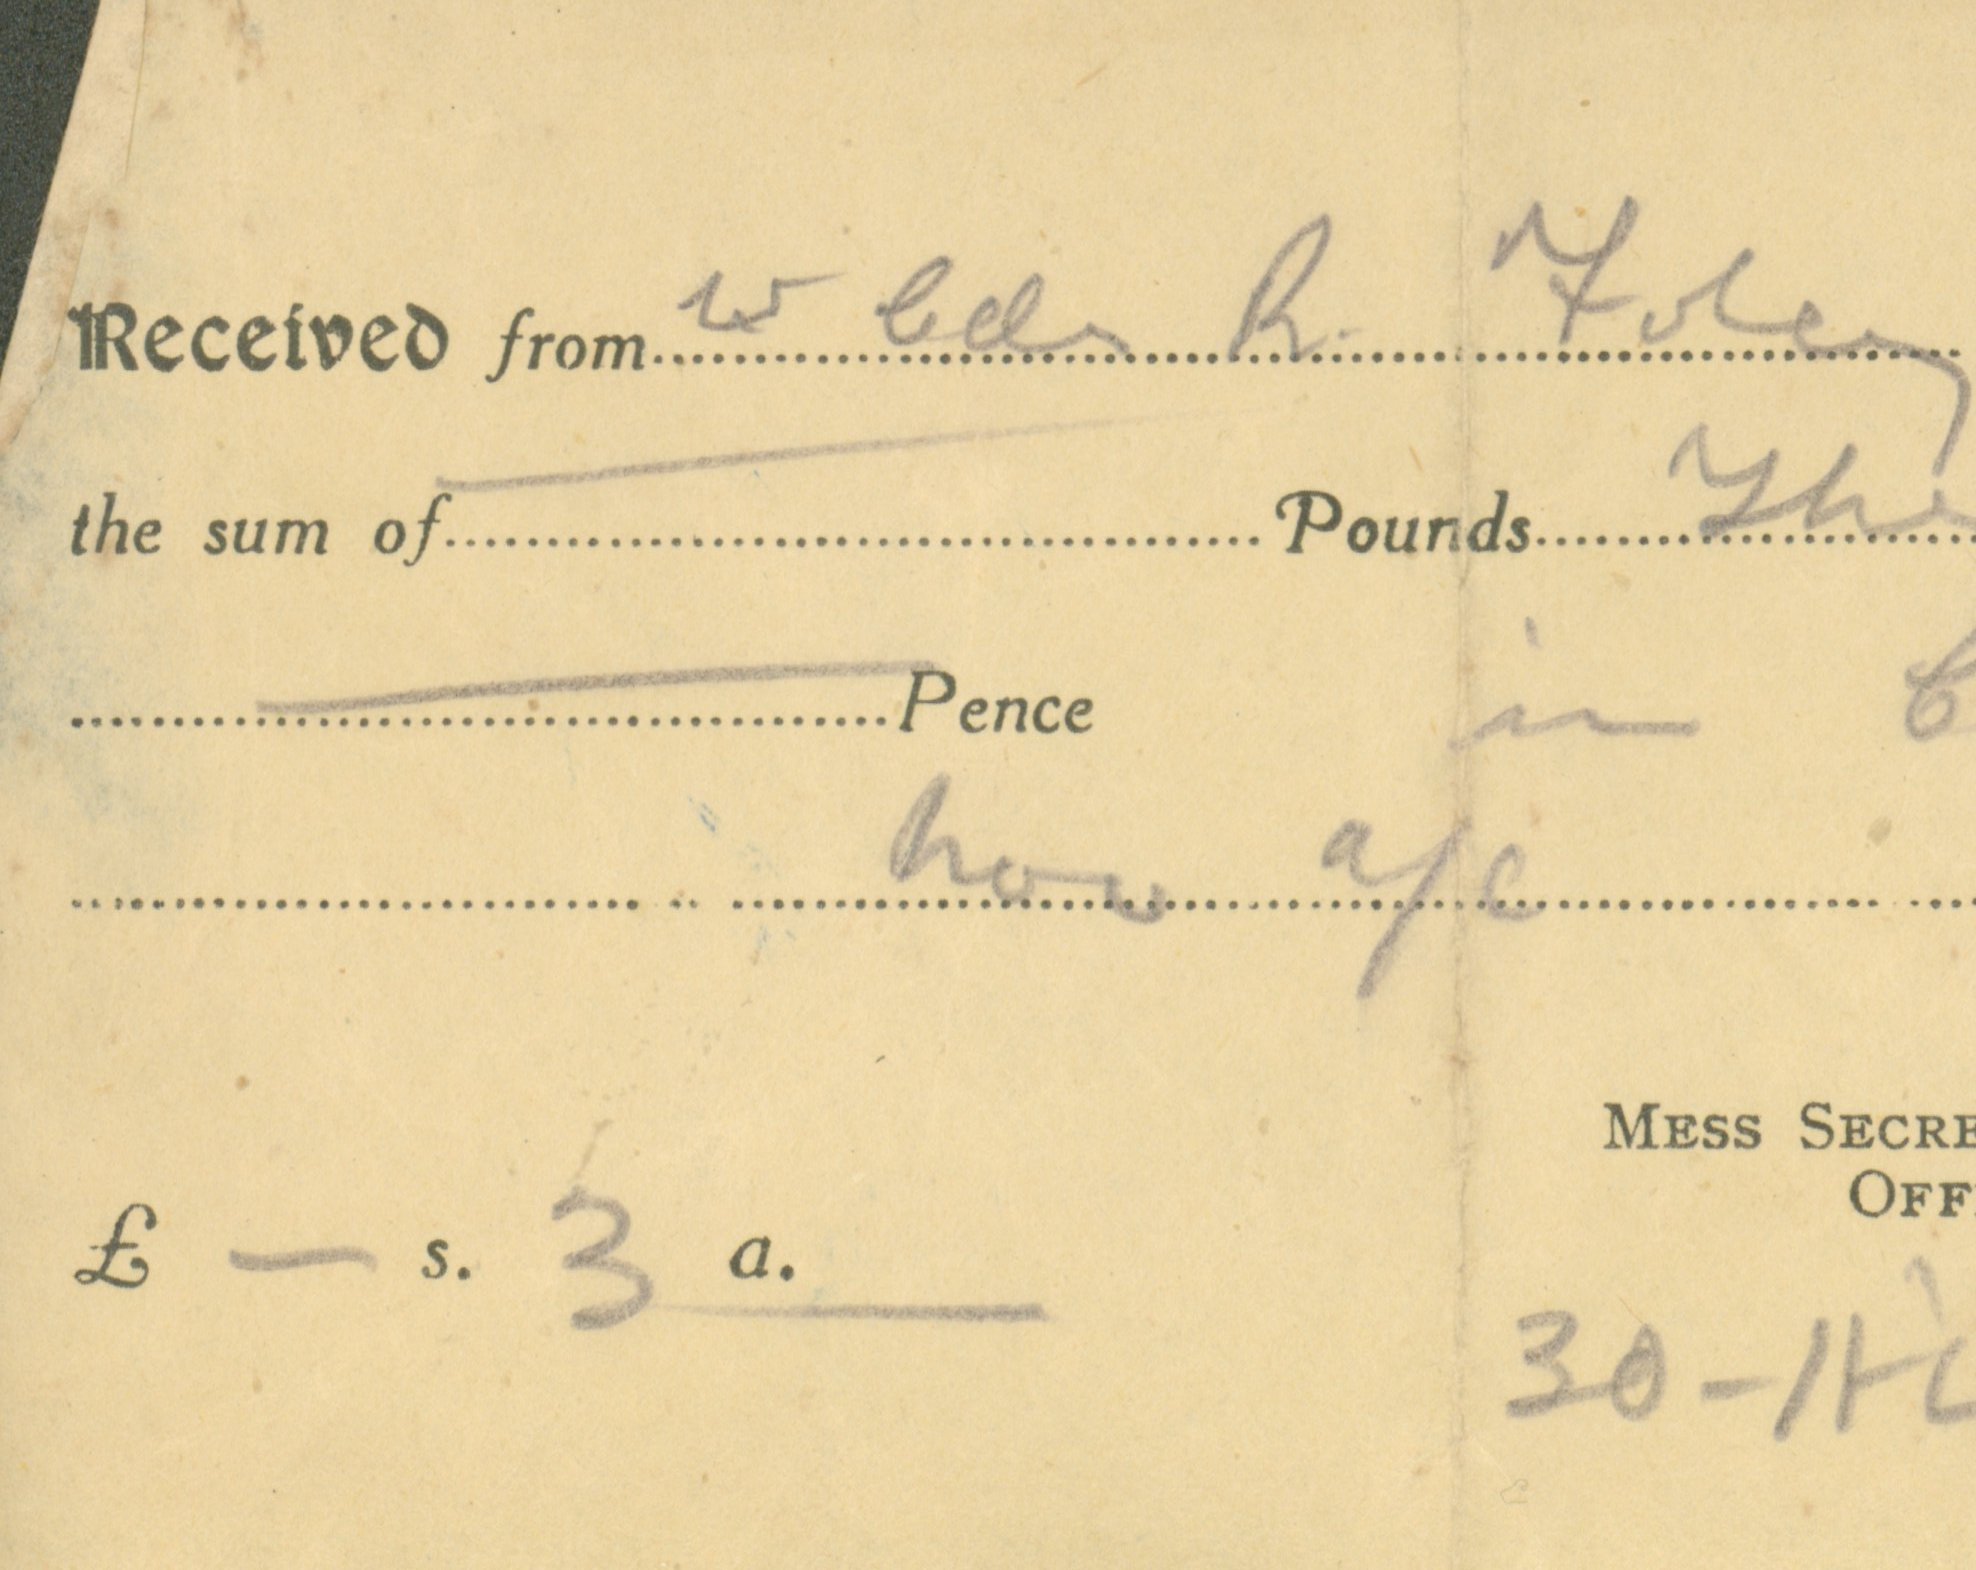 Received from W Cdr R. Foley
the sum of Pounds Thr
Pence in
Nov a/c
MESS SECRE
OFFI
£ — s. 3 d.
30-11-